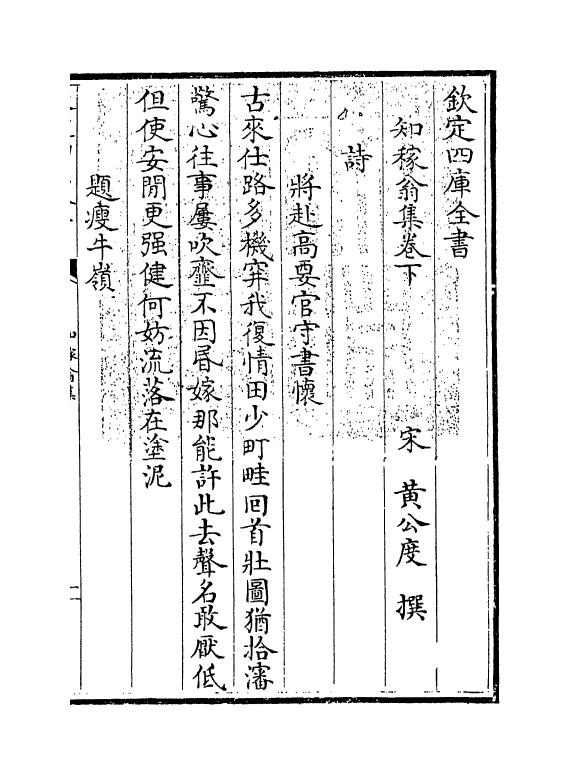 欽定四庫全書
知稼翁集卷下
宋 黄公度 撰
詩
將赴高要官守書懷
古來仕路多機穽我復情田少町畦回首壯圖猶拾瀋
驚心往事屢吹虀不因昬嫁那能許此去聲名敢厭低
但使安閒更强健何妨流落在塗泥
題瘦牛嶺